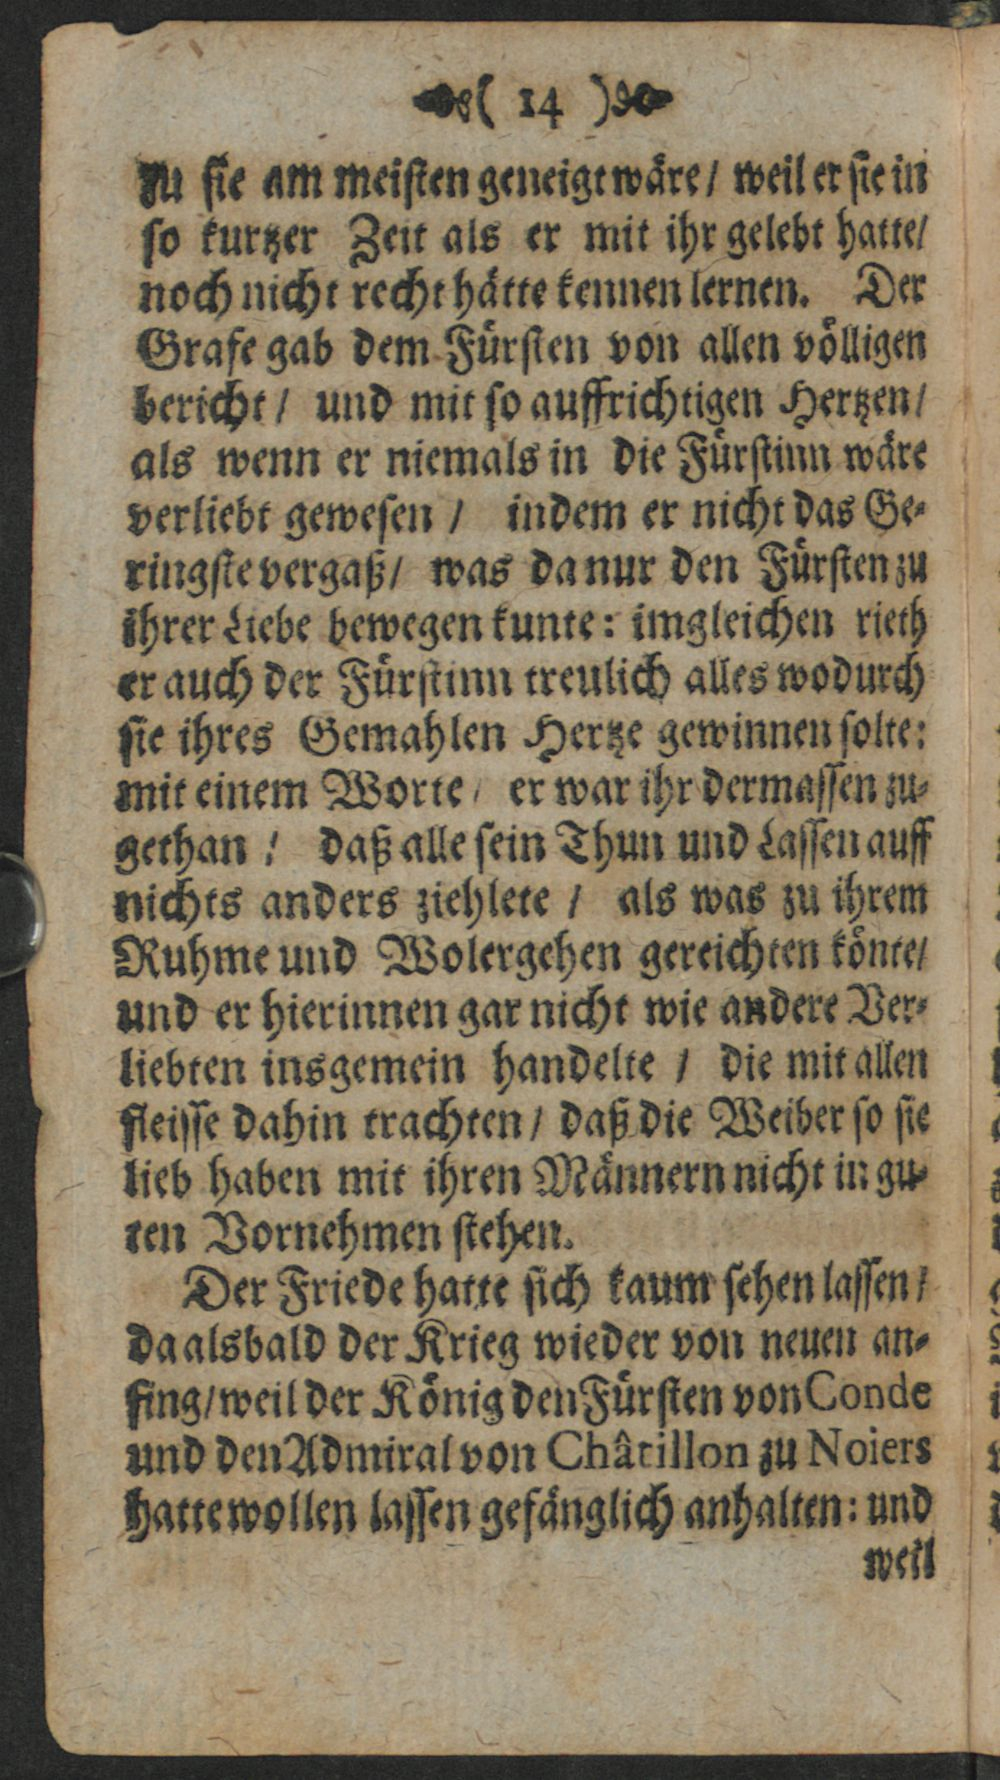 ( 14 )
zu sie am meisten geneigt wäre / weil er sie in
so kurtzer Zeit als er mit ihr gelebt hatte/
noch nicht recht hätte kennen lernen. Der
Grafe gab dem Fürsten von allen völligen
bericht / und mit so auffrichtigen Hertzen /
als wenn er niemals in die Fürstinn wäre
verliebt gewesen / indem er nicht das Ge-
ringste vergaß/ was da nur den Fürsten zu
ihrer Liebe bewegen kunte: imgleichen rieth
er auch der Fürstinn treulich alles wodurch
sie ihres Gemahlen Hertze gewinnen solte:
mit einem Worte / er war ihr dermassen zu-
gethan / daß alle sein Thun und Lassen auff
nichts anders ziehlete / als was zu ihrem
Ruhme und Wolergehen gereichten könte/
und er hierinnen gar nicht wie andere Ver-
liebten insgemein handelte / die mit allen
fleisse dahin trachten / daß die Weiber so sie
lieb haben mit ihren Männern nicht in gu-
ten Vornehmen stehen.
Der Friede hatte sich kaum sehen lassen /
da alsbald der Krieg wieder von neuen an-
fing/ weil der König den Fürsten von Conde
und den Admiral von Châtillon zu Noiers
hatte wollen lassen gefänglich anhalten: und
weil